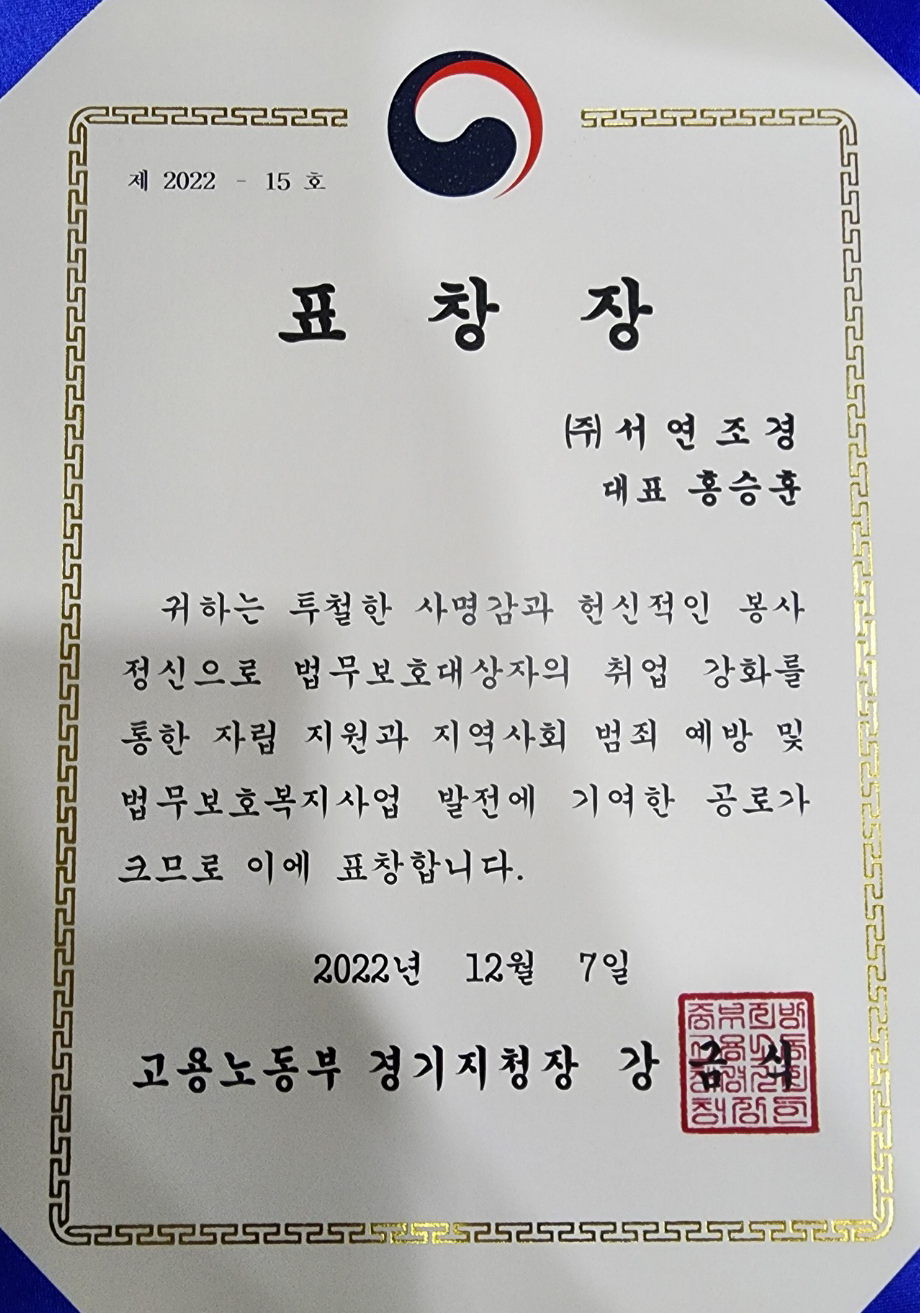 제 2022 - 15 호
표 창 장
㈜ 서 연 조 경
대표 홍승훈
귀하는 투철한 사명감과 헌신적인 봉사
정신으로 법무보호대상자의 취업 강화를
통한 자립 지원과 지역사회 범죄 예방 및
법무보호복지사업 발전에 기여한 공로가
크므로 이에 표창합니다.
2022년 12월 7일
고용노동부 경기지청장 강 금 식